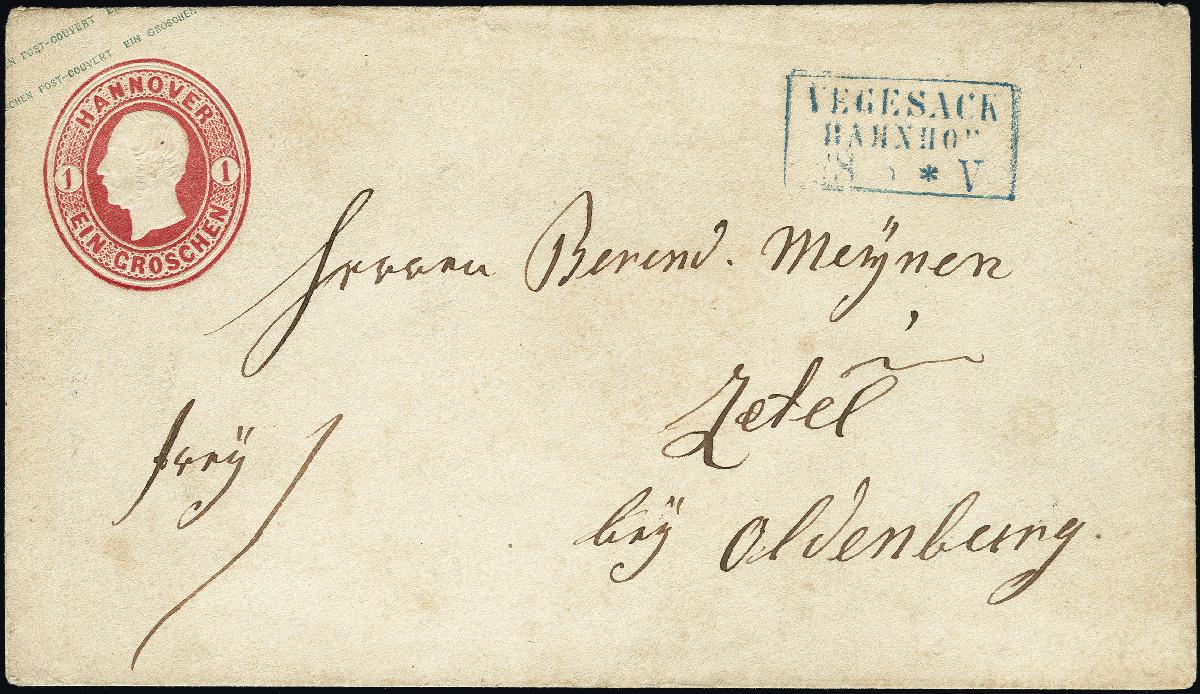 EN POST-COUVERT E
SCHEN POST-COUVERT EIN GROSCHEN
HANNOVER
1 1
EIN GROSCHEN
VEGESACK
BAHNHOF
* V
Herren Berend. Meÿnen
Zetel
freÿ
beÿ Oldenburg.